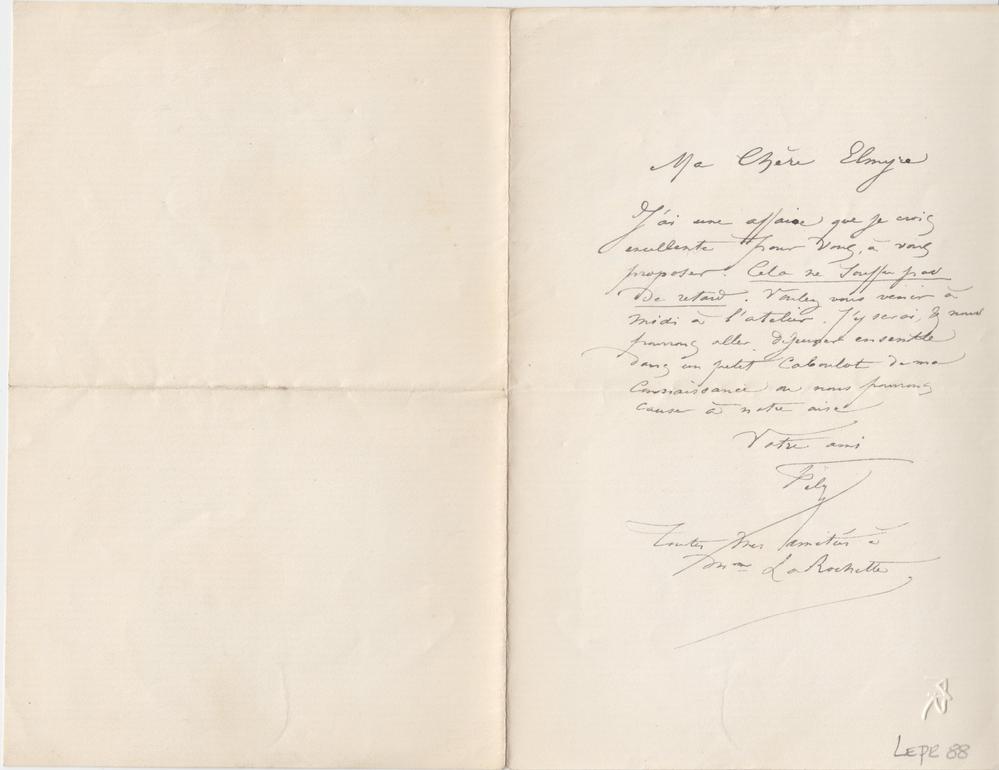 Ma Chère Elmyre
J'ai une affaire que je crois
excellente pour Vous, à vous
proposer. Cela ne souffre pas
de retard. Voulez vous venir à
midi à l'atelier. J'y serai, & nous
pourrons aller déjeuner ensemble
dans un petit Caboulot de ma
Connaissance ou nous pourrons
causer à notre aise
Votre ami
Toutes mes amitiés à
Mme La Rochette
LEPR 88